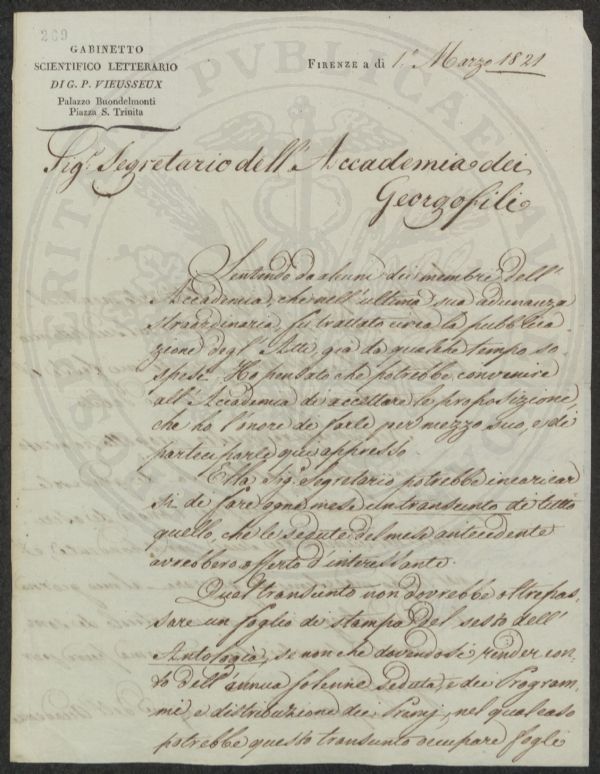 269
GABINETTO
SCIENTIFICO LETTERARIO
DI G. P. VIEUSSEUX
Palazzo Buondelmonti
Piazza S. Trinita
FIRENZE a dì 1.º Marzo 1821
Sigr. Segretario dell'Accademia dei
Georgofili
Sentendo da alcuni dei membri dell'
Accademia, che nell'ultima sua adunanza
straordinaria, fu trattato circa la pubblica
zione degl'Atti, già da qualche tempo so
spesi. Ho pensato che potrebbe convenire
all'Accademia di accettare le proposizioni,
che ho l'onore di farle per mezzo suo, e di
parteciparle qui appresso.
Ella Sigr. Segretario potrebbe incaricar
si di fare ogni mese un transunto di tutto
quello, che le sedute del mese antecedente
avrebbero offerto d'interessante.
Qual transunto non dovrebbe oltrepas
sare un foglio di stampa del sesto dell'
Antologia, se non che dovendosi render con
to dell'annua solenne seduta, e dei Program
mi, e distribuzione dei Premj, nel qual caso
potrebbe questo transunto occupare fogli